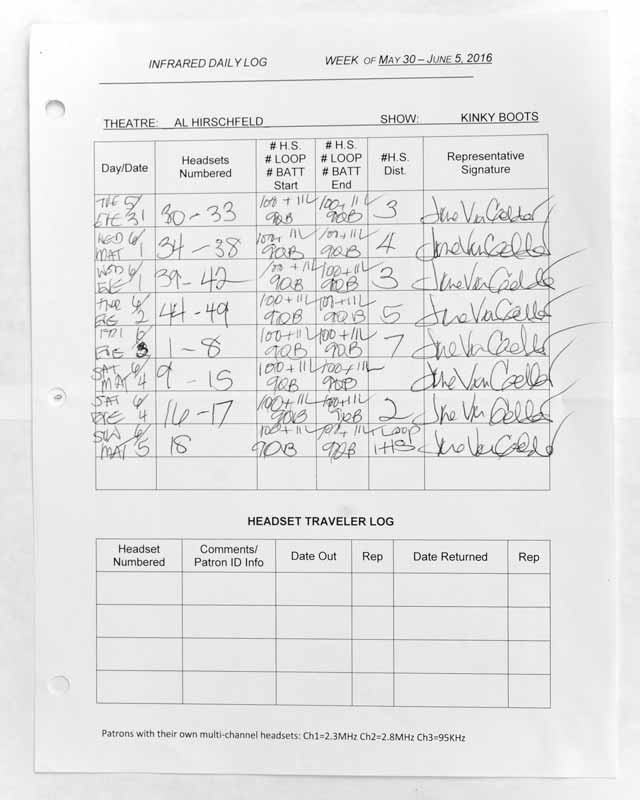 INFRARED DAILY LOG WEEK OF MAY 30 – JUNE 5, 2016
THEATRE: AL HIRSCHFELD SHOW: KINKY BOOTS
Day/Date Headsets Numbered # H.S. # LOOP # BATT Start # H.S. # LOOP # BATT End #H.S. Dist. Representative Signature
TUE 5/ EVE 31 30 – 33 100 + 11L 90B 100 + 11L 90B 3
WED 6/ MAT 1 34 – 38 100 + 11L 90B 100 + 11L 90B 4
WED 6/ EVE 1 39 – 42 100 + 11L 90B 100 + 11L 90B 3
THR 6/ EVE 2 44 – 49 100 + 11L 90B 100 + 11L 90B 5
FRI 6/ EVE 3 1 – 8 100 + 11L 90B 100 + 11L 90B 7
SAT 6/ MAT 4 9 – 15 100 + 11L 90B 100 + 11L 90B
SAT 6/ EVE 4 16 – 17 100 + 11L 90B 100 + 11L 90B 2
SUN 6/ MAT 5 18 100 + 11L 90B 100 + 11L 90B 1 LOOP 1 HS
HEADSET TRAVELER LOG
Headset Numbered Comments/ Patron ID Info Date Out Rep Date Returned Rep
Patrons with their own multi-channel headsets: Ch1=2.3MHz Ch2=2.8MHz Ch3=95KHz